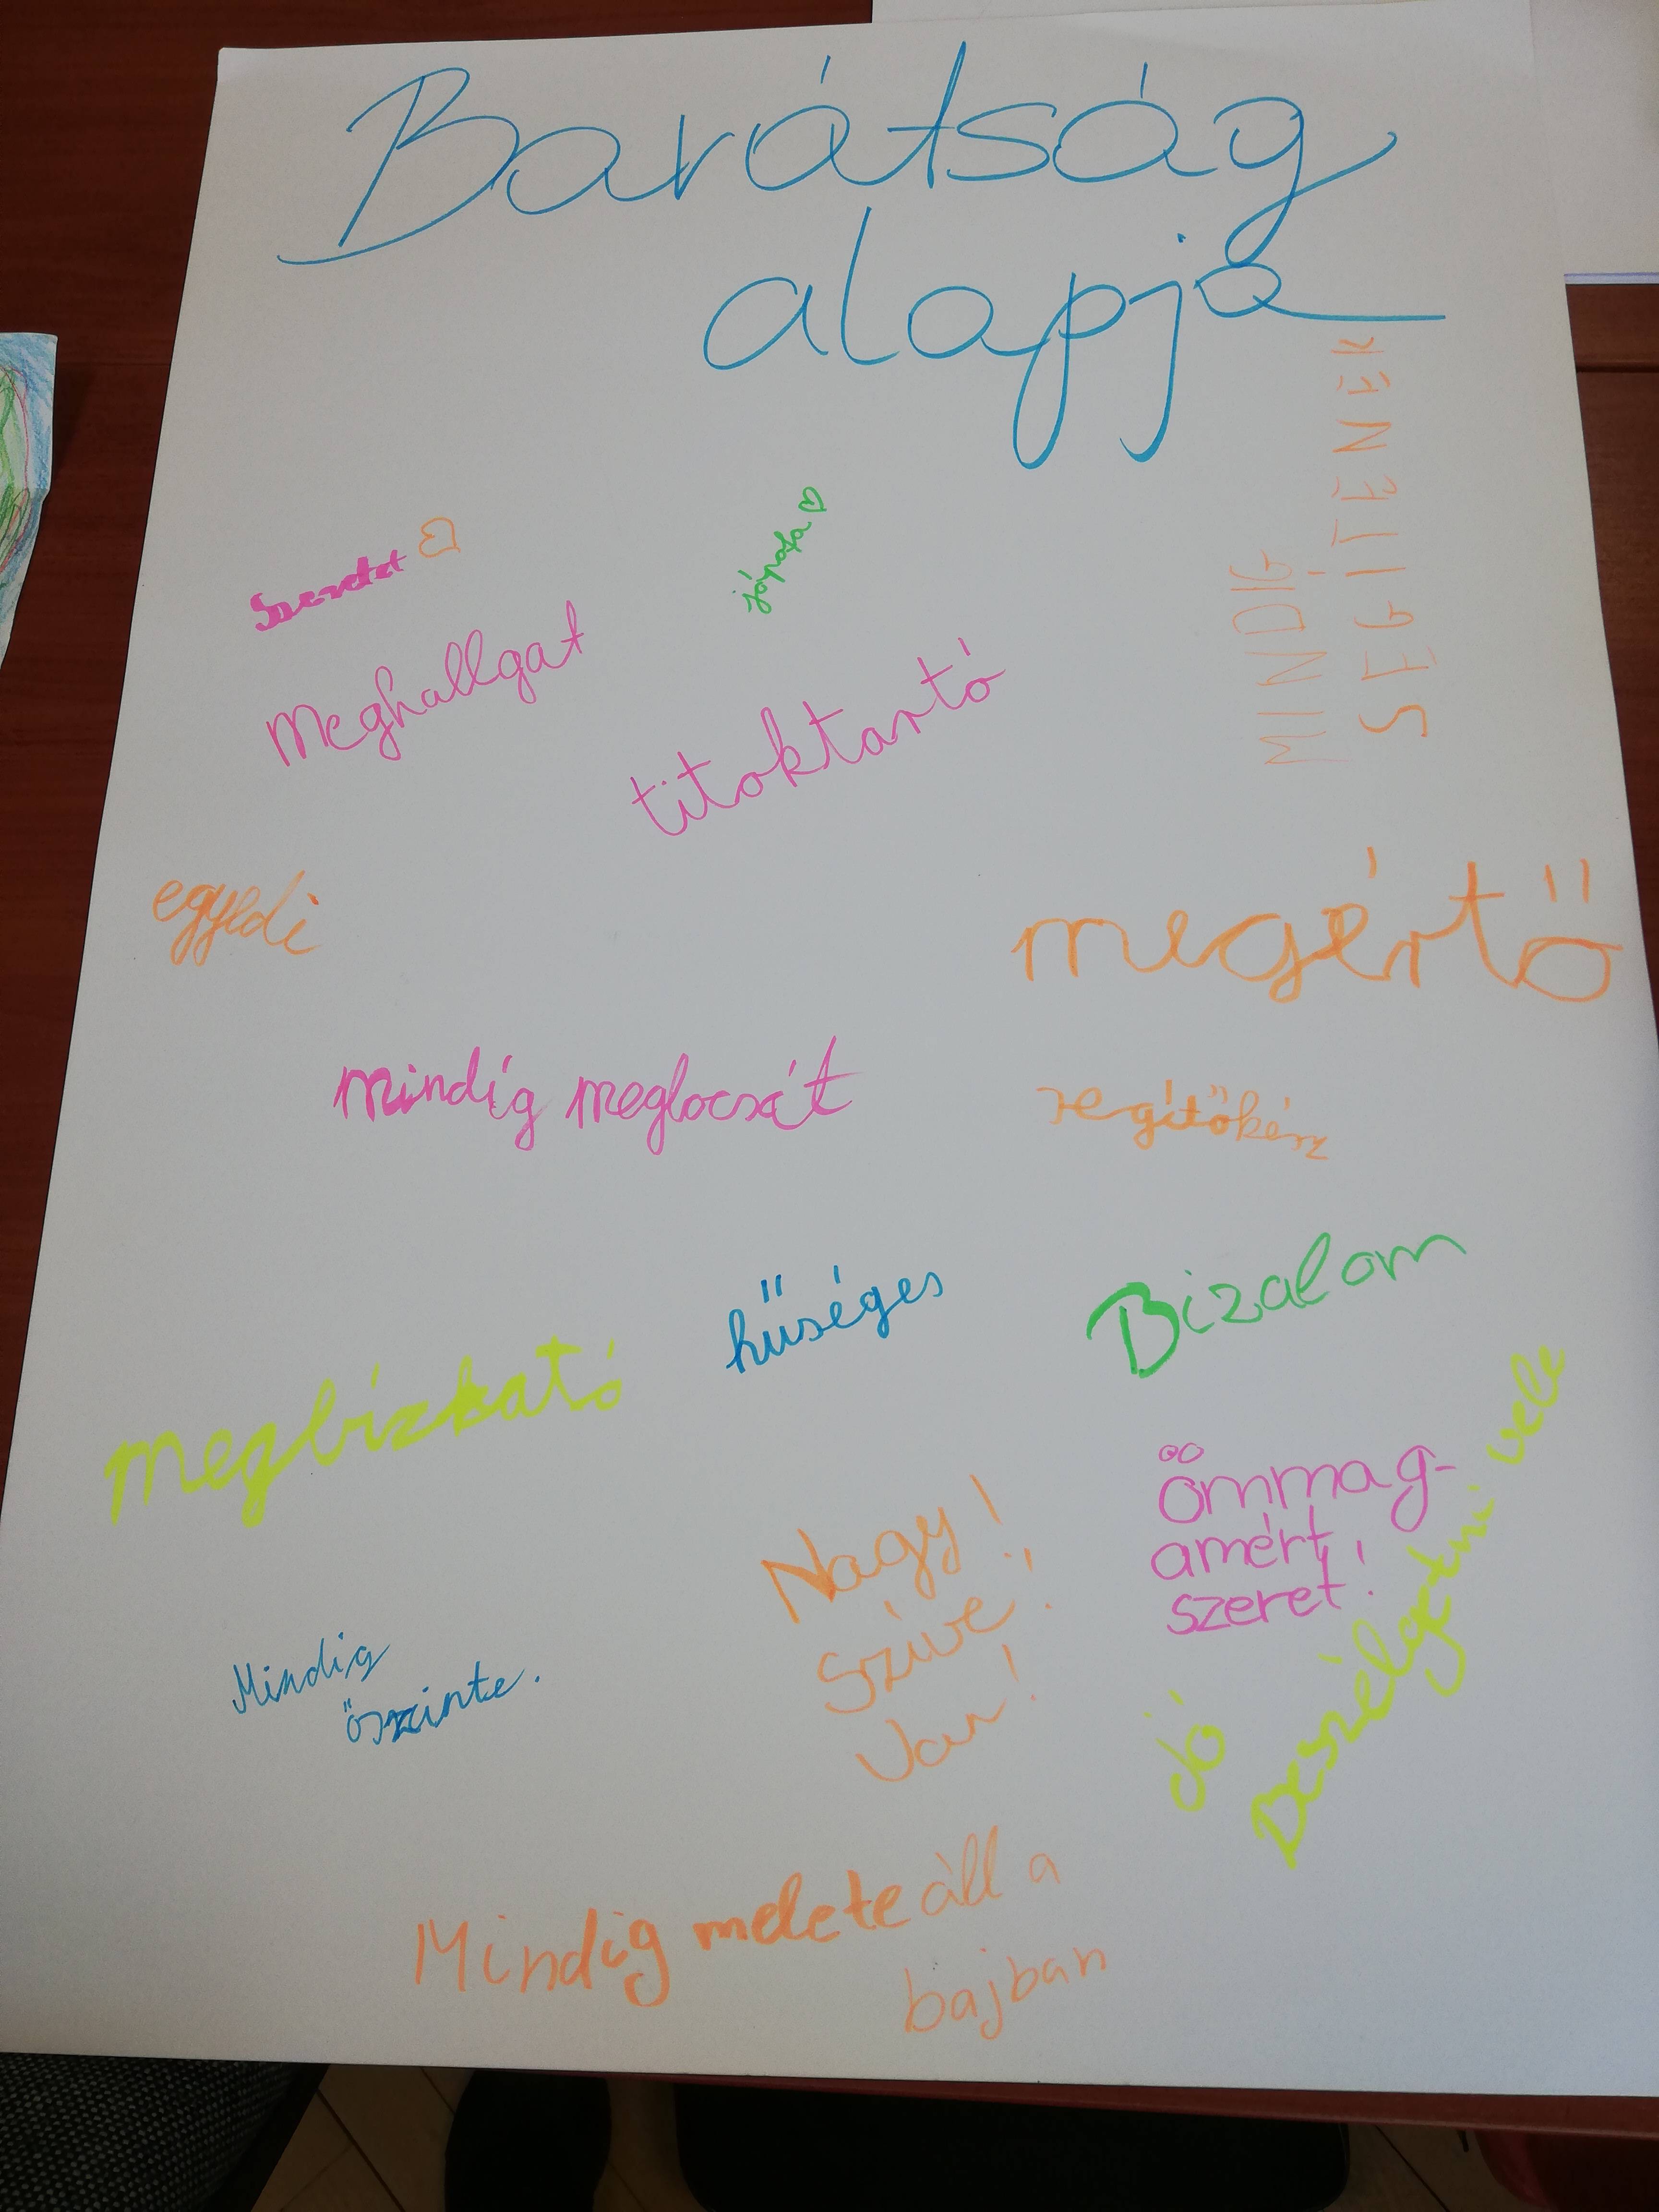 Barátság
alapja
Szeretet
jópofa
Meghallgat
titoktartó
MINDIG
SEGÍTENEK
egyedi
megértő
mindíg meglocsát
segítőkész
hűséges
Bizalom
megbízható
önmmag-
amért
szeret!
Jó
Beszélgetni vele
Nagy!
Szíve!
Van!
Mindig
őszinte.
Mindig melete áll a
bajban